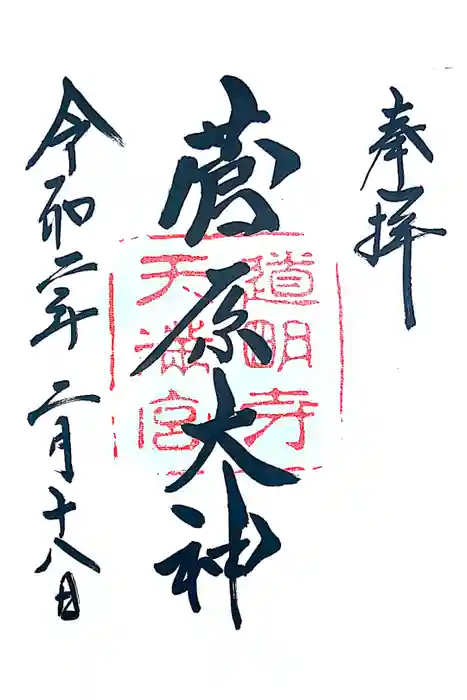 奉拝
菅原大神
道明寺
天満宮
令和二年二月十八日